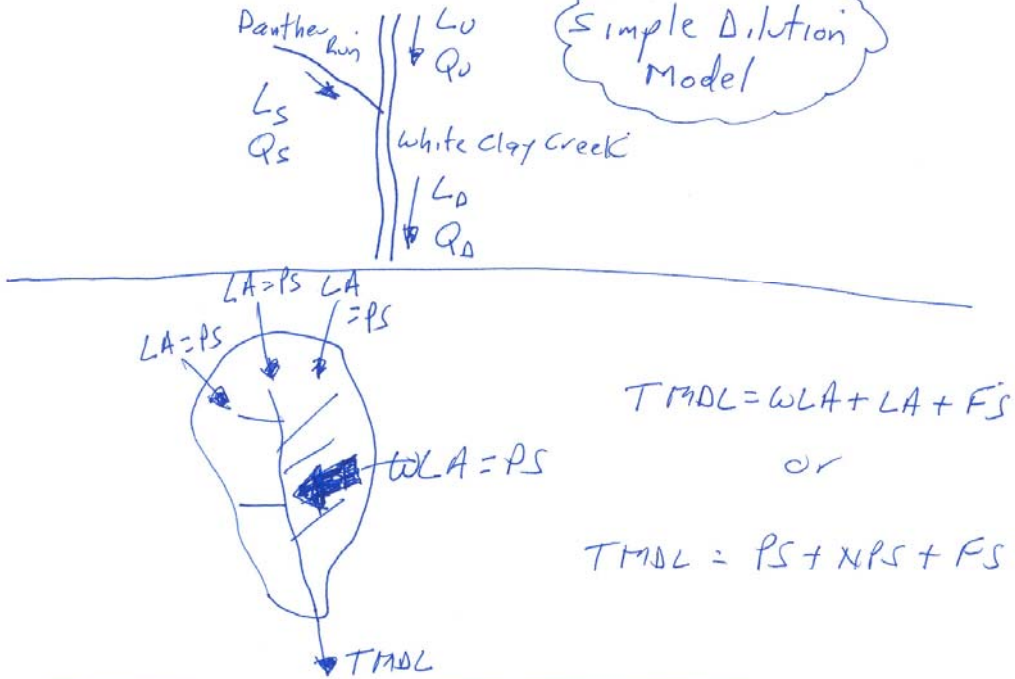 Panther Run
LU
QU
Simple Dilution
Model
LS
QS
White Clay Creek
LD
QD
LA=PS
LA
=PS
LA=PS
TMDL=WLA+LA+FS
WLA=PS
or
TMDL = PS + NPS + FS
TMDL